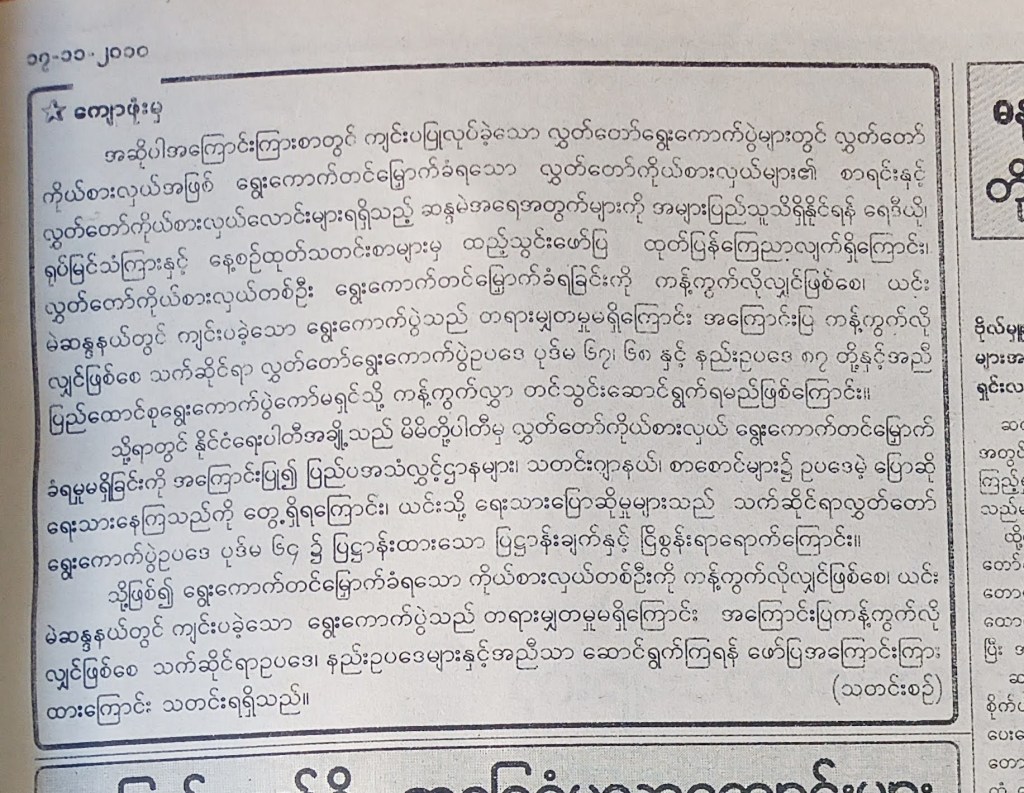 ၁၇-၁၁-၂၀၁၀
☆ ကျောဖုံးမှ
အဆိုပါအကြောင်းကြားစာတွင် ကျင်းပပြုလုပ်ခဲ့သော လွှတ်တော်ရွေးကောက်ပွဲများတွင် လွှတ်တော်
ကိုယ်စားလှယ်အဖြစ် ရွေးကောက်တင်မြှောက်ခံရသော လွှတ်တော်ကိုယ်စားလှယ်များ၏ စာရင်းနှင့်
လွှတ်တော်ကိုယ်စားလှယ်လောင်းများရရှိသည့် ဆန္ဒမဲအရေအတွက်များကို အများပြည်သူသိရှိနိုင်ရန် ရေဒီယို၊
ရုပ်မြင်သံကြားနှင့် နေ့စဉ်ထုတ်သတင်းစာများမှ ထည့်သွင်းဖော်ပြ ထုတ်ပြန်ကြေညာလျက်ရှိကြောင်း၊
လွှတ်တော်ကိုယ်စားလှယ်တစ်ဦး ရွေးကောက်တင်မြှောက်ခံရခြင်းကို ကန့်ကွက်လိုလျှင်ဖြစ်စေ၊ ယင်း
မဲဆန္ဒနယ်တွင် ကျင်းပခဲ့သော ရွေးကောက်ပွဲသည် တရားမျှတမှုမရှိကြောင်း အကြောင်းပြ ကန့်ကွက်လို
လျှင်ဖြစ်စေ သက်ဆိုင်ရာ လွှတ်တော်ရွေးကောက်ပွဲဥပဒေ ပုဒ်မ ၆၇၊ ၆၈ နှင့် နည်းဥပဒေ ၈၇ တို့နှင့်အညီ
ပြည်ထောင်စုရွေးကောက်ပွဲကော်မရှင်သို့ ကန့်ကွက်လွှာ တင်သွင်းဆောင်ရွက်ရမည်ဖြစ်ကြောင်း။
သို့ရာတွင် နိုင်ငံရေးပါတီအချို့သည် မိမိတို့ပါတီမှ လွှတ်တော်ကိုယ်စားလှယ် ရွေးကောက်တင်မြှောက်
ခံရမှုမရှိခြင်းကို အကြောင်းပြု၍ ပြည်ပအသံလွှင့်ဌာနများ၊ သတင်းဂျာနယ်၊ စာစောင်များ၌ ဥပဒေမဲ့ ပြောဆို
ရေးသားနေကြသည်ကို တွေ့ရှိရကြောင်း၊ ယင်းသို့ ရေးသားပြောဆိုမှုများသည် သက်ဆိုင်ရာလွှတ်တော်
ရွေးကောက်ပွဲဥပဒေ ပုဒ်မ ၆၄ ၌ ပြဋ္ဌာန်းထားသော ပြဋ္ဌာန်းချက်နှင့် ငြိစွန်းရာရောက်ကြောင်း။
သို့ဖြစ်၍ ရွေးကောက်တင်မြှောက်ခံရသော ကိုယ်စားလှယ်တစ်ဦးကို ကန့်ကွက်လိုလျှင်ဖြစ်စေ၊ ယင်း
မဲဆန္ဒနယ်တွင် ကျင်းပခဲ့သော ရွေးကောက်ပွဲသည် တရားမျှတမှုမရှိကြောင်း အကြောင်းပြကန့်ကွက်လို
လျှင်ဖြစ်စေ သက်ဆိုင်ရာဥပဒေ၊ နည်းဥပဒေများနှင့်အညီသာ ဆောင်ရွက်ကြရန် ဖော်ပြအကြောင်းကြား
ထားကြောင်း သတင်းရရှိသည်။ (သတင်းစဉ်)